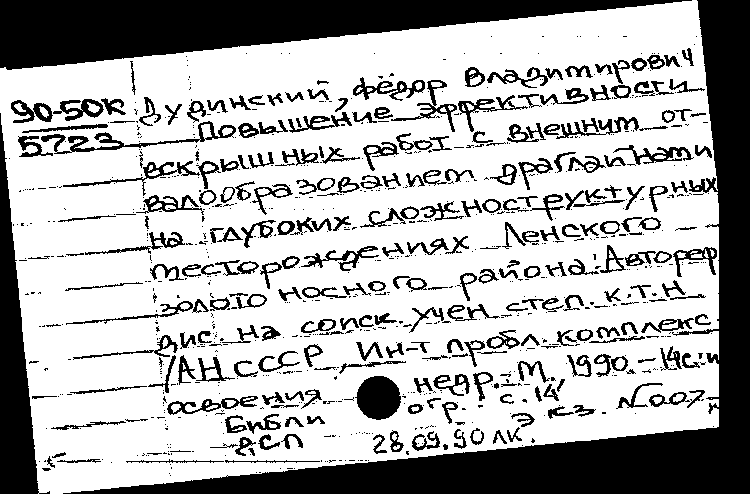 90-50К
5723
Дудинский, Фёдор Владимирович
Повышение эффективности
вскрышных работ с внешним от-
валообразованием драглайнами
на глубоких сложноструктурных
месторождениях Ленского
золотоносного района: Автореф
дис. на соиск. учен степ. к.т.н
/АН СССР, Ин-т пробл. комплекс.
освоения недр.-М. 1990.-14с.:и
Библи огр.: с.14
ДСП Экз. №007
28.09.90 ЛК.